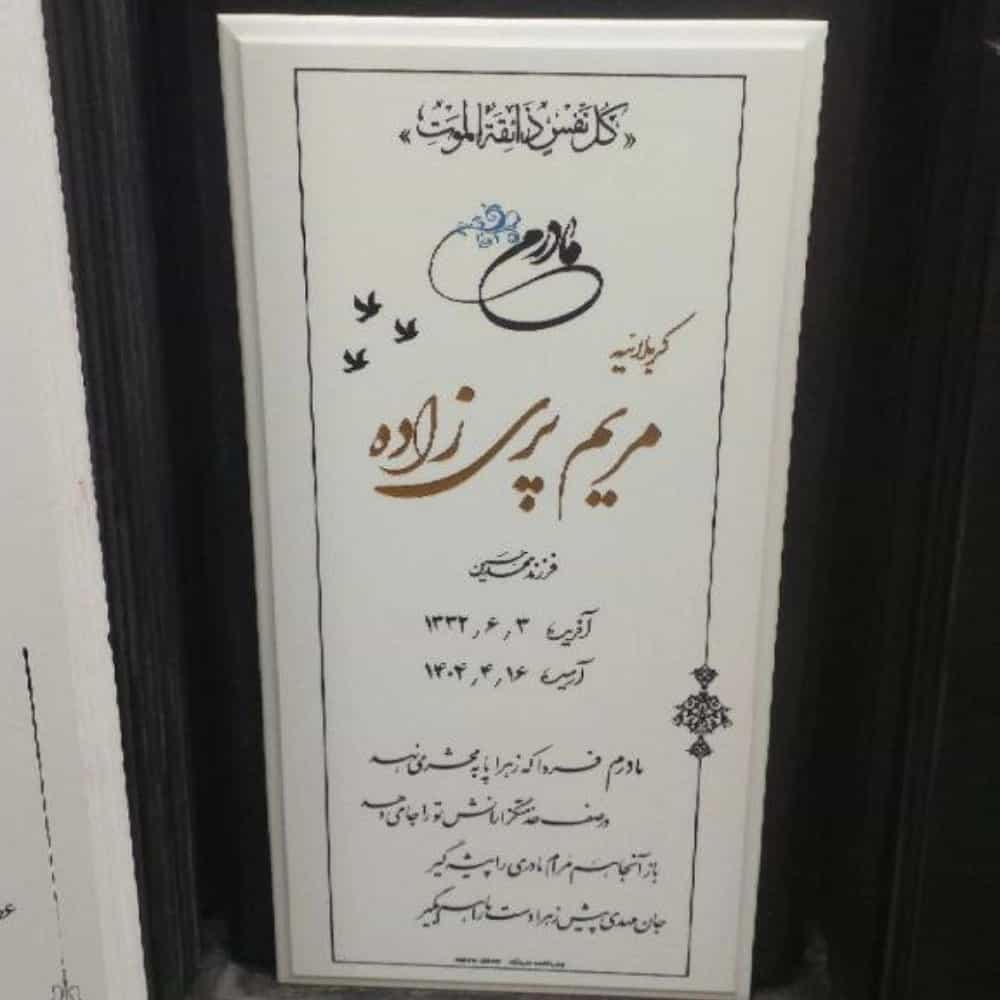 «كُلُّ نَفْسٍ ذَائِقَةُ الْمَوْتِ»
مادرم
کربلائیه
مریم پری زاده
فرزند محمدحسین
آفرینش ۱۳۳۲٫۶٫۳
آرمیدن ۱۴۰۴٫۴٫۱۶
مادرم فردا که زهرا پا به محشر می نهد
در صف خدمتگزارانش تو را جای دهد
باز آنجا هم مرام مادری را پیشه گیر
جان مهدی پیش زهرا دست ما را هم بگیر